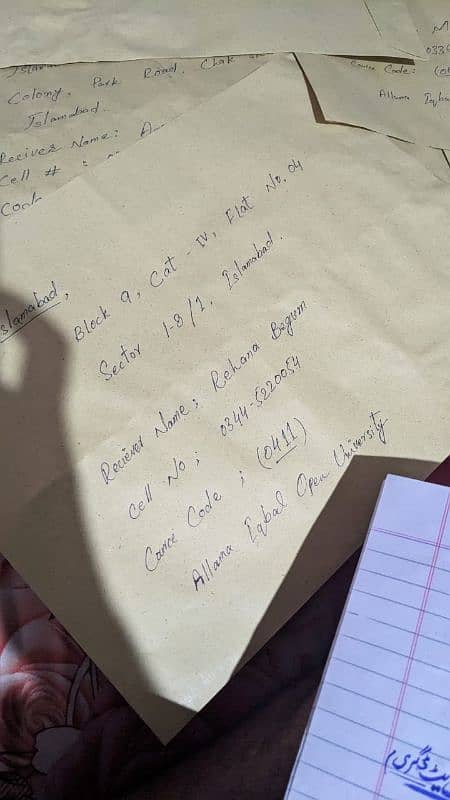 Colony, Park Road, Chak
Islamabad.
Reciver Name:
Cell # :
Code
0334
Cource Code: (0
Allama Iqbal
Islamabad,
Block 9, Cat - IV, Flat No. 04
Sector I-8/1, Islamabad.
Reciever Name; Rehana Begum
Cell No; 0344-5220054
Cource Code ; (0411)
Allama Iqbal Open University